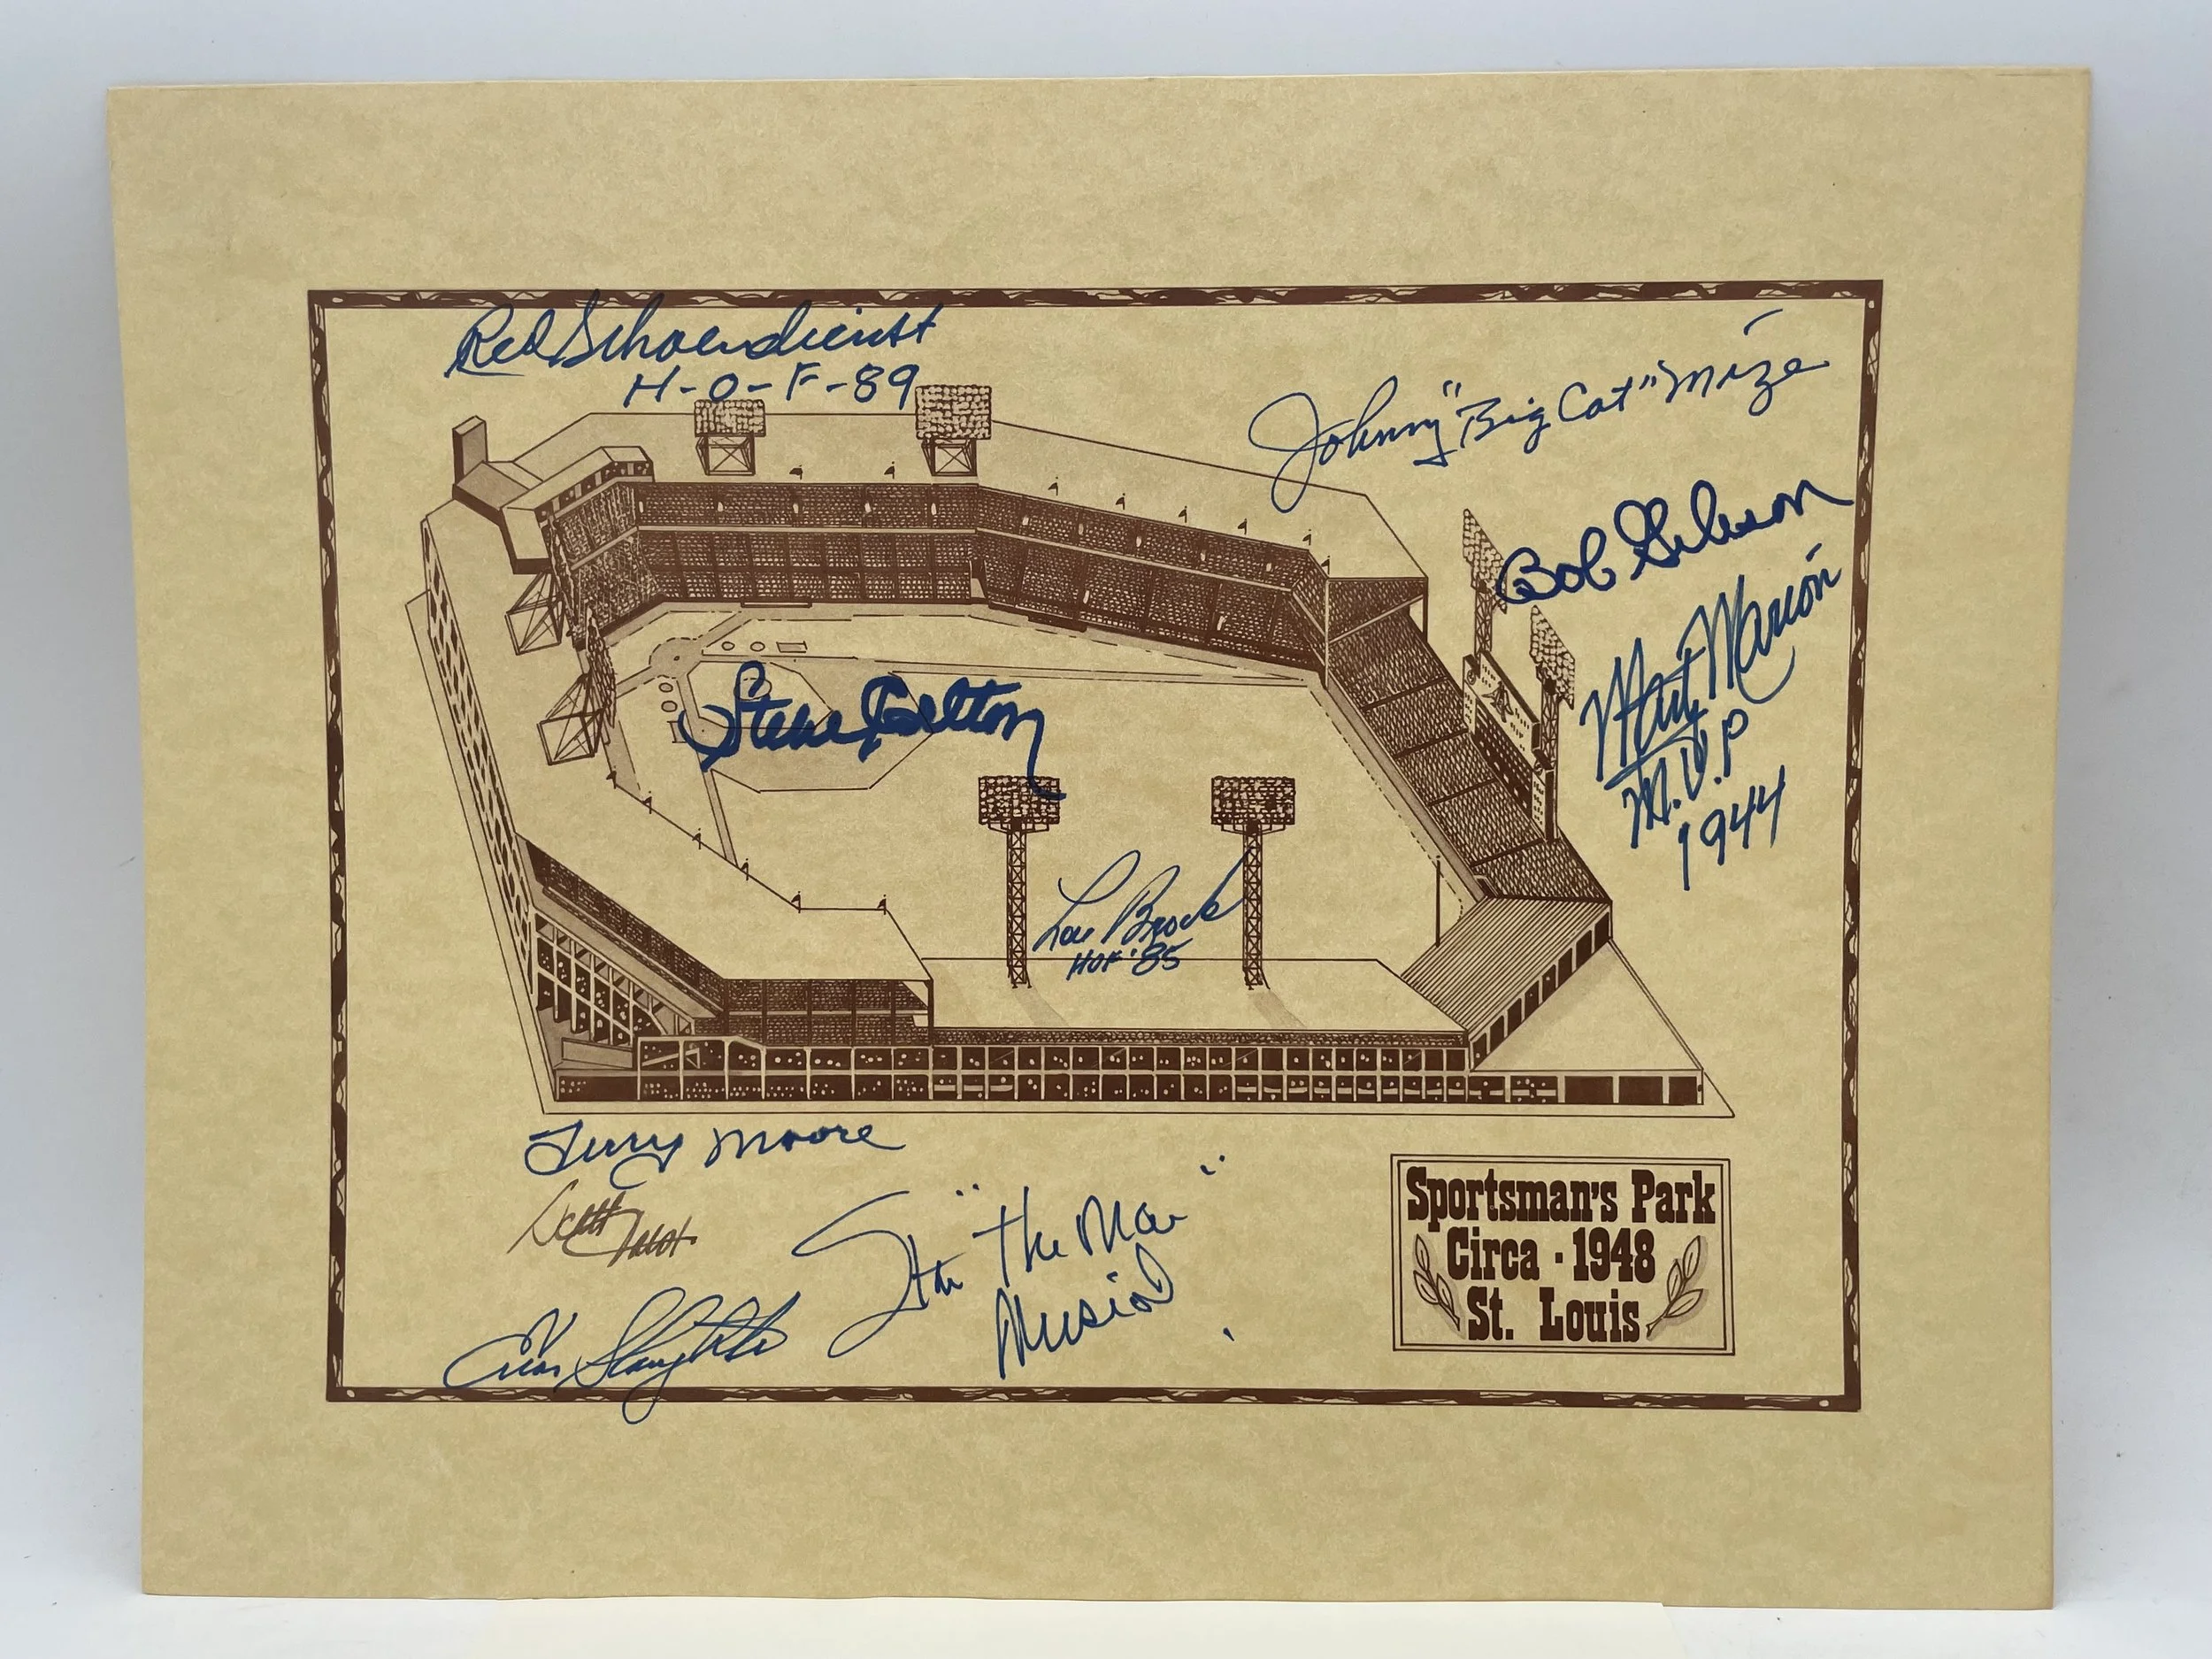 Red Schoendienst
H-O-F-89
Johnny "Big Cat" Mize
Bob Gibson
Marty Marion
M.V.P
1944
Steve Carlton
Lou Brock
HOF '85
Terry Moore
Stan "The Man"
Musial
Enos Slaughter
Sportsman's Park
Circa - 1948
St. Louis